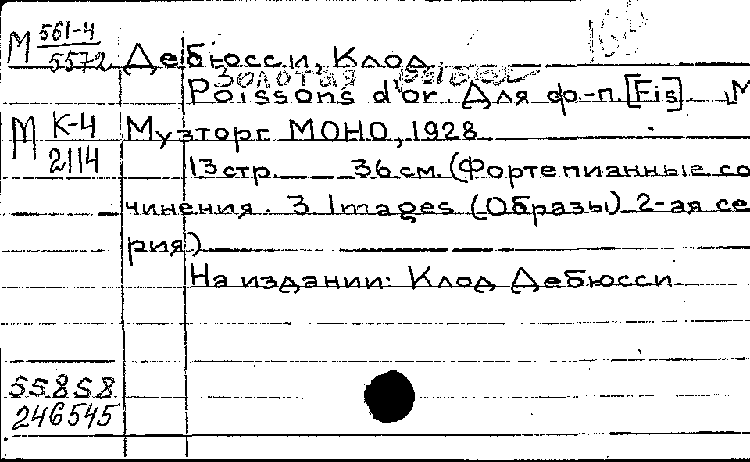 М 561-4
5572
Дебюсси, Клод
Золотая
Poissons d'or. Для ф-п. [Fis]. М
М К-4
2114
Музторг МОНО, 1928
13 стр. 36 см. (Фортепианные со
чинения. 3 Images (Образы) 2-ая се
рия)
На издании: Клод Дебюсси
55858
246545